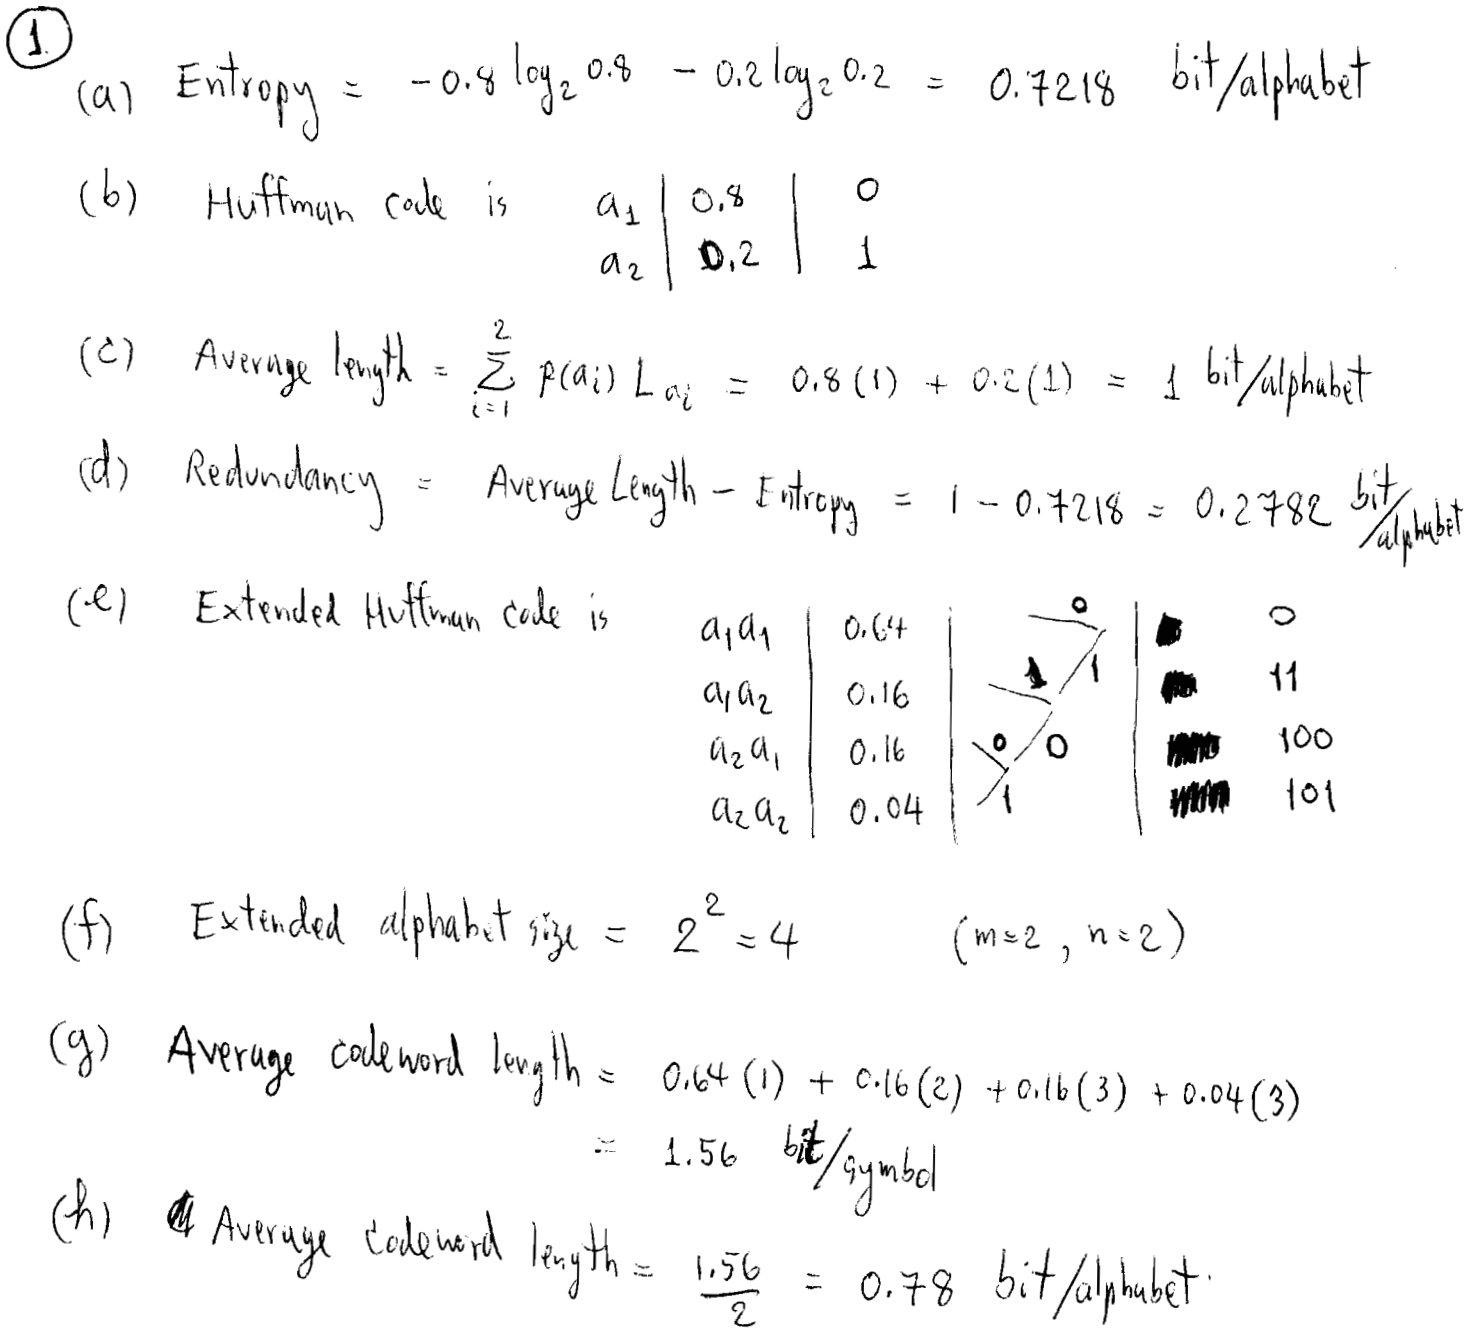 1.
(a) Entropy = -0.8 log₂ 0.8 - 0.2 log₂ 0.2 = 0.7218 bit/alphabet
(b) Huffman code is a₁ | 0.8 | 0
a₂ | 0.2 | 1
(c) Average length = Σ_{i=1}^{2} p(aᵢ) L_{aᵢ} = 0.8(1) + 0.2(1) = 1 bit/alphabet
(d) Redundancy = Average Length - Entropy = 1 - 0.7218 = 0.2782 bit/alphabet
(e) Extended Huffman code is a₁a₁ | 0.64 | 0 | 0
a₁a₂ | 0.16 | 1 1 | 11
a₂a₁ | 0.16 | 0 0 | 100
a₂a₂ | 0.04 | 1 | 101
(f) Extended alphabet size = 2² = 4 (m=2, n=2)
(g) Average codeword length = 0.64(1) + 0.16(2) + 0.16(3) + 0.04(3)
= 1.56 bit/symbol
(h) Average codeword length = 1.56/2 = 0.78 bit/alphabet.